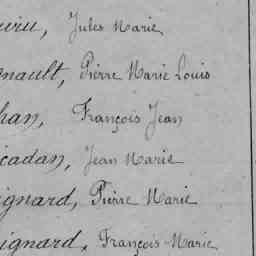 Jules Marie
nault, Pierre Marie Louis
han, François Jean
cadan, Jean Marie
ignard, Pierre Marie
ignard, François-Marie